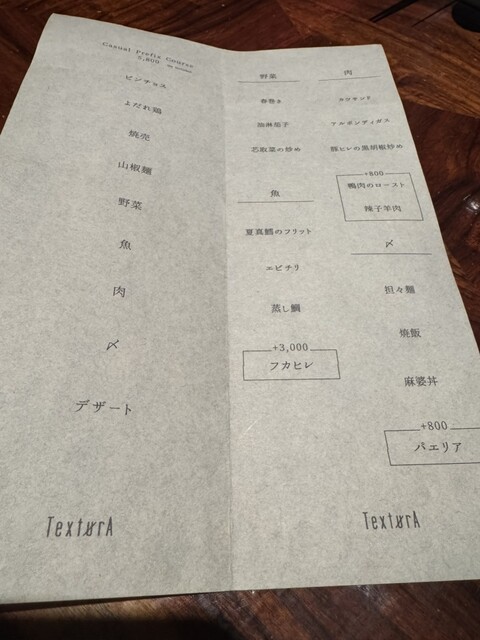 Casual Prefix Course
ピンチョス
よだれ鶏
焼売
山椒麺
野菜
魚
肉
〆
デザート
TexturA
野菜
春巻き
麻婆茄子
芯取菜の炒め
魚
夏真鱈のフリット
エビチリ
蒸し鯛
+3,000
フカヒレ
肉
カツサンド
アルボンディガス
豚ヒレの黒胡椒炒め
+800
鴨肉のロースト
辣子羊肉
〆
担々麺
焼飯
麻婆丼
+800
パエリア
TexturA